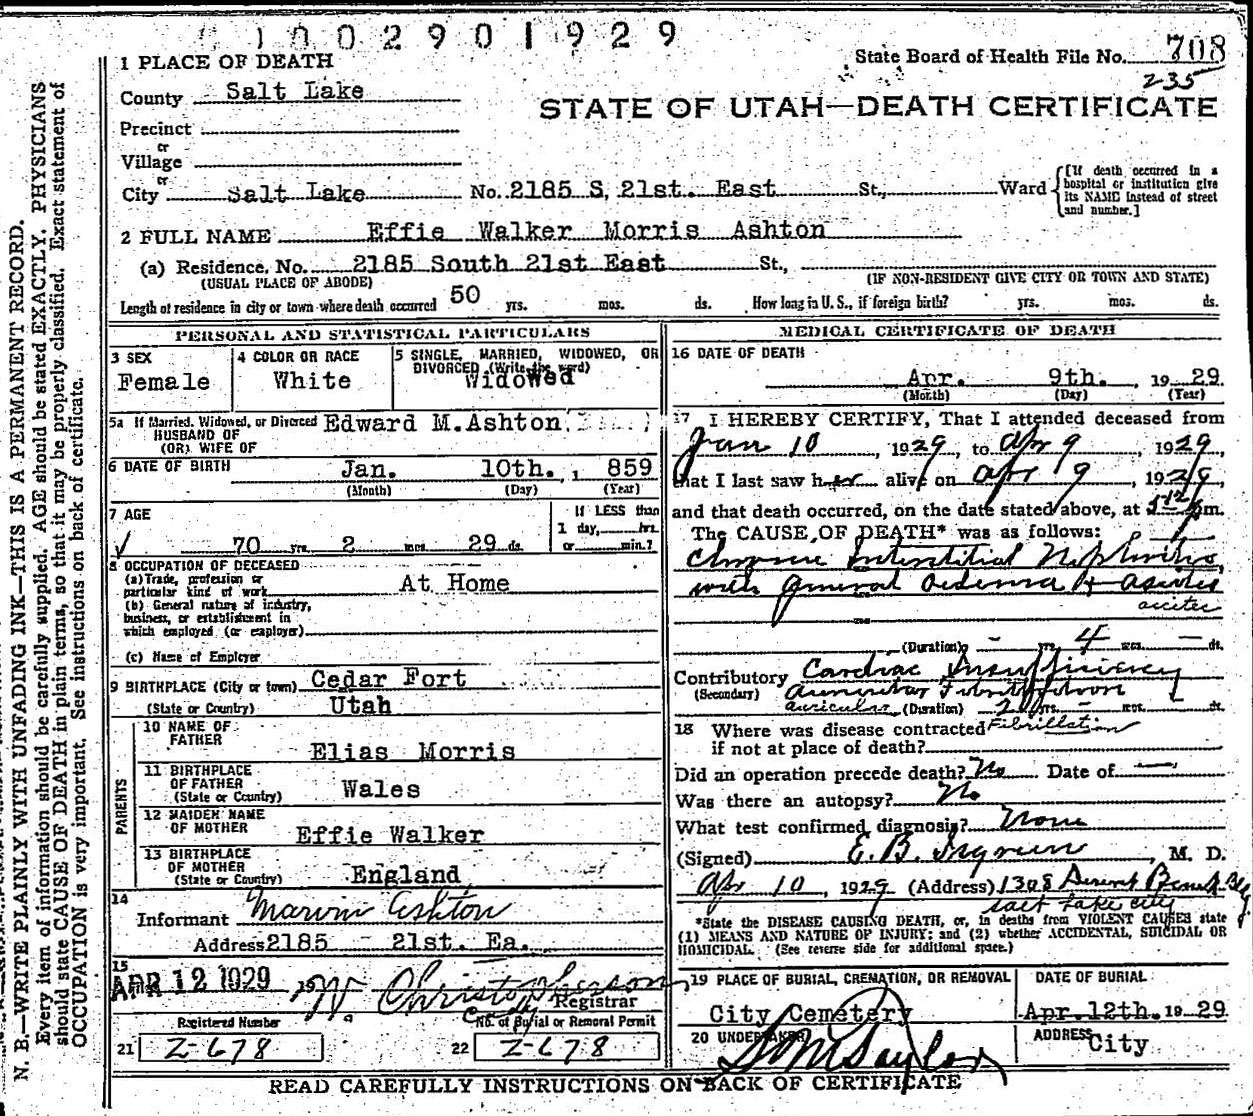 1002901929
State Board of Health File No. 708
235
STATE OF UTAH—DEATH CERTIFICATE
1 PLACE OF DEATH
County Salt Lake
Precinct
or
Village
or
City Salt Lake No. 2185 S. 21st. East St., Ward
[If death occurred in a hospital or institution give its NAME instead of street and number.]
2 FULL NAME Effie Walker Morris Ashton
(a) Residence, No. 2185 South 21st East St.,
(USUAL PLACE OF ABODE) (IF NON-RESIDENT GIVE CITY OR TOWN AND STATE)
Length of residence in city or town where death occurred 50 yrs. mos. ds. How long in U. S., if foreign birth? yrs. mos. ds.
PERSONAL AND STATISTICAL PARTICULARS
3 SEX
Female
4 COLOR OR RACE
White
5 SINGLE, MARRIED, WIDOWED, OR
DIVORCED (Write the word)
Widowed
5a If Married, Widowed, or Divorced Edward M. Ashton
HUSBAND OF
(OR) WIFE OF
6 DATE OF BIRTH Jan. 10th. , 1 859
(Month) (Day) (Year)
7 AGE
70 yrs. 2 mos. 29 ds.
If LESS than
1 day, hrs.
or min.?
8 OCCUPATION OF DECEASED
(a) Trade, profession or
particular kind of work At Home
(b) General nature of industry,
business, or establishment in
which employed (or employer)
(c) Name of Employer
9 BIRTHPLACE (City or town) Cedar Fort
(State or Country) Utah
PARENTS
10 NAME OF
FATHER Elias Morris
11 BIRTHPLACE
OF FATHER
(State or Country) Wales
12 MAIDEN NAME
OF MOTHER Effie Walker
13 BIRTHPLACE
OF MOTHER
(State or Country) England
14
Informant Marvin Ashton
Address 2185 - 21st. Ea.
15
APR 12 1929 19 W. Christopherson
Registrar
Registered Number No. of Burial or Removal Permit
21 Z-678 22 Z-678
MEDICAL CERTIFICATE OF DEATH
16 DATE OF DEATH
Apr. 9th. , 19 29
(Month) (Day) (Year)
17 I HEREBY CERTIFY, That I attended deceased from
Jan 10 , 1929, to Apr 9 1929,
that I last saw her alive on Apr 9 , 1929,
and that death occurred, on the date stated above, at m.
The CAUSE OF DEATH* was as follows:
Chronic Interstitial Nephritis,
with general oedema &
ascites
(Duration) - yrs. 4 mos. - ds.
Contributory Cardiac Insufficiency
(Secondary)
auricular (Duration) 2 yrs. - mos. ds.
18 Where was disease contracted Fibrillation
if not at place of death?
Did an operation precede death? No Date of —
Was there an autopsy? No
What test confirmed diagnosis? None
(Signed) E. B. , M. D.
Apr 10 , 1929 (Address) 1308 Deseret Bank Blg
Salt Lake City
*State the DISEASE CAUSING DEATH, or, in deaths from VIOLENT CAUSES state
(1) MEANS AND NATURE OF INJURY; and (2) whether ACCIDENTAL, SUICIDAL OR
HOMICIDAL. (See reverse side for additional space.)
19 PLACE OF BURIAL, CREMATION, OR REMOVAL
City Cemetery
DATE OF BURIAL
Apr. 12th. 19 29
20 UNDERTAKER S M Taylor
ADDRESS City
READ CAREFULLY INSTRUCTIONS ON BACK OF CERTIFICATE
N. B.—WRITE PLAINLY WITH UNFADING INK—THIS IS A PERMANENT RECORD.
Every item of information should be carefully supplied. AGE should be stated EXACTLY. PHYSICIANS
should state CAUSE OF DEATH in plain terms, so that it may be properly classified. Exact statement of
OCCUPATION is very important. See instructions on back of certificate.